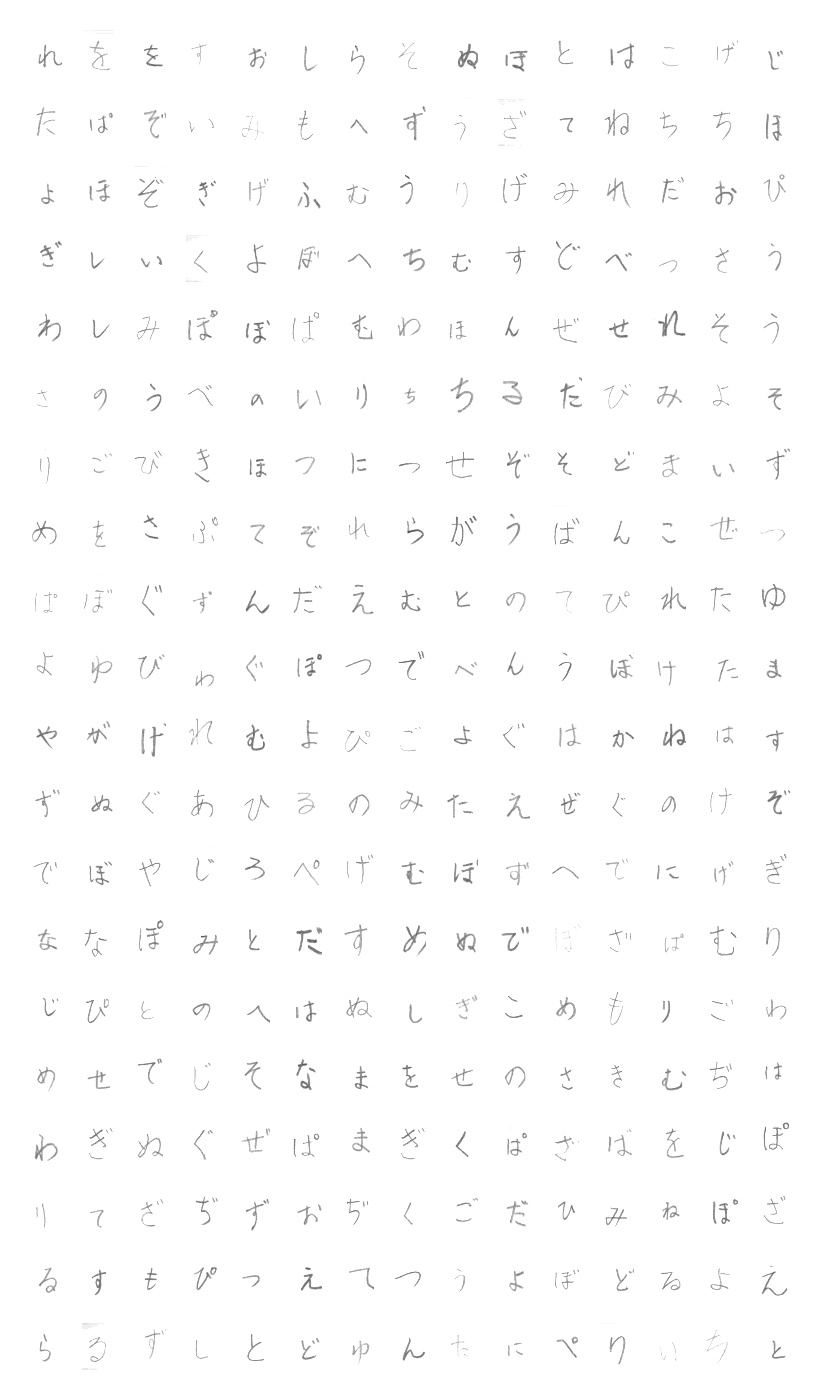 れををすおしらそぬほとはこげじ
たぱぞいみもへずうざてねちちほ
よほぞぎげふむうりげみれだおぴ
ぎしいくよぼへちむすどべっさう
わしみぽぼぱむわほんぜせれそう
さのうべのいりちちるだびみよそ
りごびきほつにつせぞそどまいず
めをさぷてぞれらがうばんこぜつ
ぱぼぐずんだえむとのてぴれたゆ
よゆびわぐぽつでべんうぼけたま
やがげれむよぴごよぐはかねはす
ずぬぐあひるのみたえぜぐのけぞ
でぼやじろぺげむぼずへでにげぎ
ななぽみとだすめぬでぼざぱむり
じぴとのへはぬしぎこめもりごわ
めせでじそなまをせのさきむぢは
わぎぬぐぜぱまぎくぱざばをじぽ
りてざぢずおぢくごだひみねぽざ
るすもぴつえてつうよぼどるよえ
らるずしとどゆんたにぺりいちと